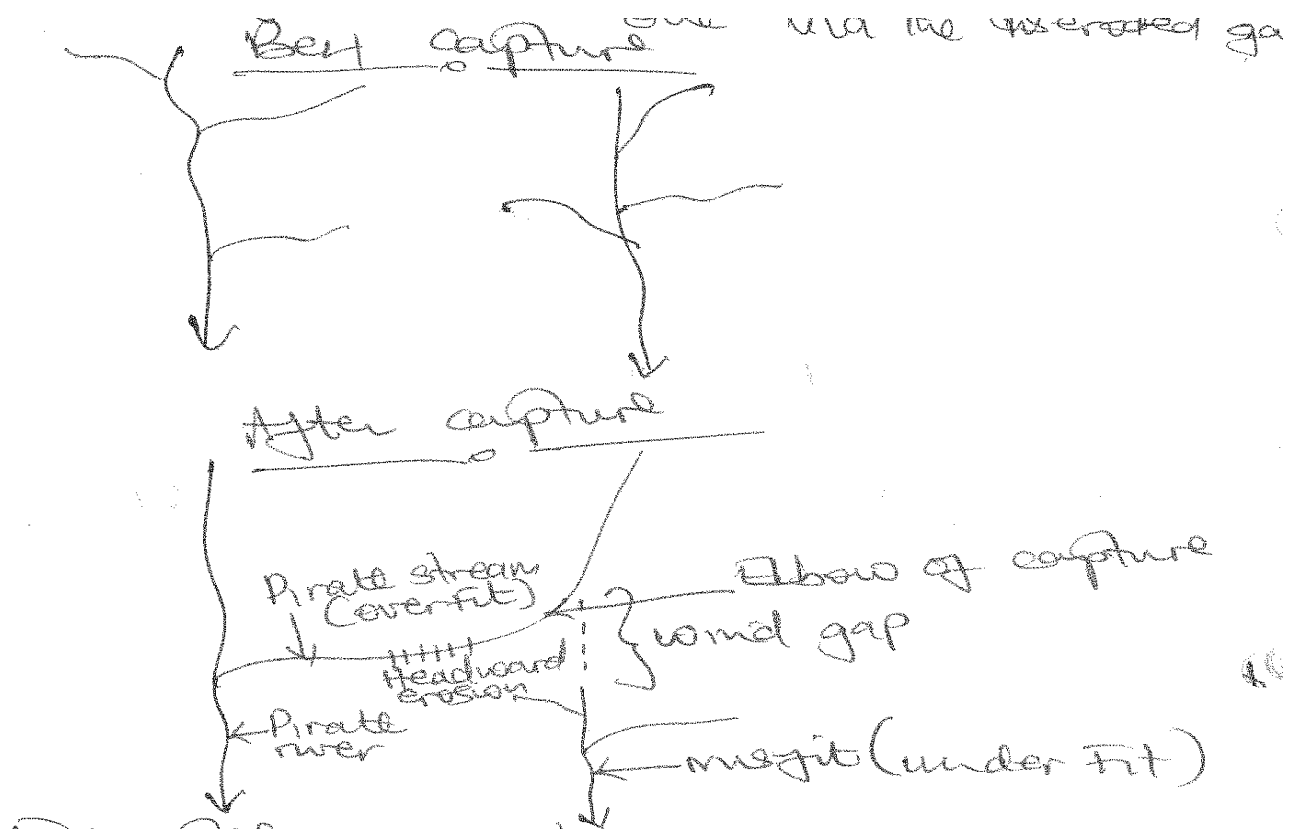 via the
capture
After capture
Pirate stream
(overFit)
Elbow of capture
wind gap
Headward
erosion
Pirate
river
misfit (under Fit)